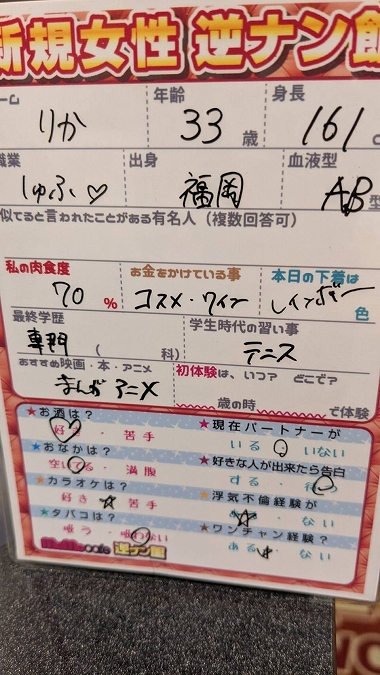 新規女性 逆ナン館
ーム 年齢 身長
りか 33歳 161c
職業 出身 血液型
しゅふ♡ 福岡 AB型
似てると言われたことがある有名人（複数回答可）
私の肉食度 お金をかけている事 本日の下着は
70% コスメ・ワイン レインボー色
最終学歴 学生時代の習い事
専門（ 科） テニス
おすすめ映画・本・アニメ 初体験は、いつ? どこで?
まんが アニメ 歳の時 で体験
★お酒は? ★現在パートナーが
好き・苦手 いる・いない
★おなかは? ★好きな人が出来たら告白
空いてる・満腹 する・待つ
★カラオケは? ★浮気不倫経験が
好き・苦手 ある・ない
★タバコは? ★ワンチャン経験?
吸う・吸わない ある・ない
cafe 逆ナン館